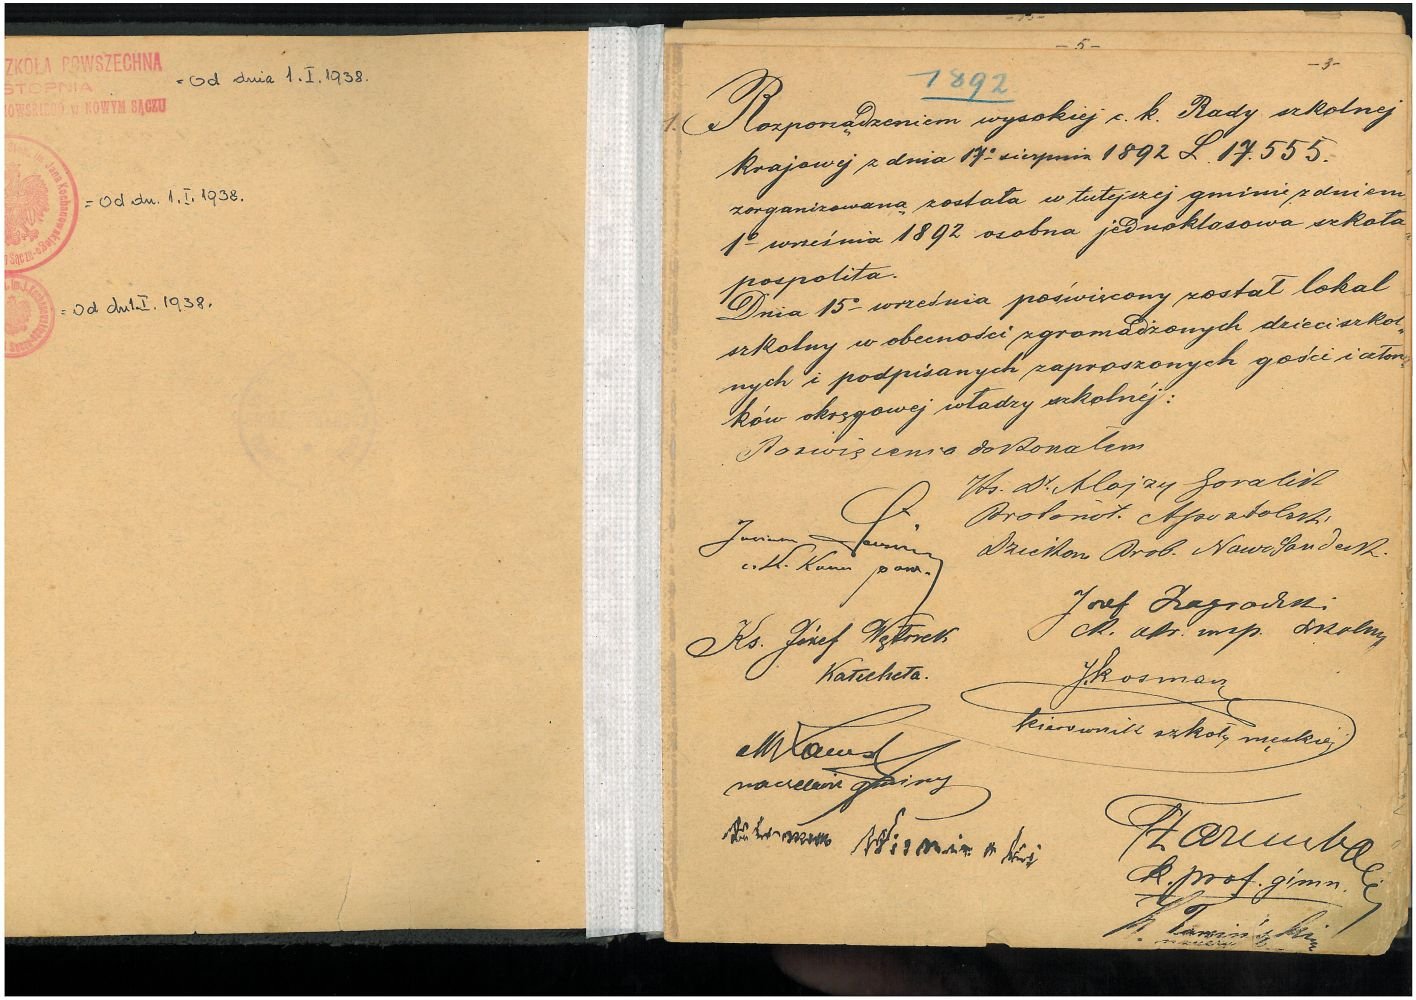 SZKOŁA POWSZECHNA
STOPNIA
NOWYM SĄCZU
= Od dnia 1. I. 1938.
im. Jana Kochanowskiego
= Od dn. 1. I. 1938.
= Od dn 1. I. 1938.
- 5 -
- 3 -
1892
1. Rozporządzeniem wysokiej c. k. Rady szkolnej
krajowej z dnia 17º sierpnia 1892 L. 17.555.
zorganizowaną została w tutejszej gminie z dniem
1º września 1892 osobna jednoklasowa szkoła
pospolita.
Dnia 15º września poświęcony został lokal
szkolny w obecności zgromadzonych dzieci szkol-
nych i podpisanych zaproszonych gości i człon-
ków okręgowej władzy szkolnéj:
Poświęcenia dokonałem
Ks. Dr. Alojzy Goralik
Protonot. Apostolski
Dziekan Prob. NawoSandeck.
c. k. Kom pow.
Józef Zagrodzki
ck. okr. insp. szkolny
Ks. Józef Wątorek
Katecheta.
J. Kosman
kierownik szkoły męskiej
naczelnik gminy
k. prof. gimn.